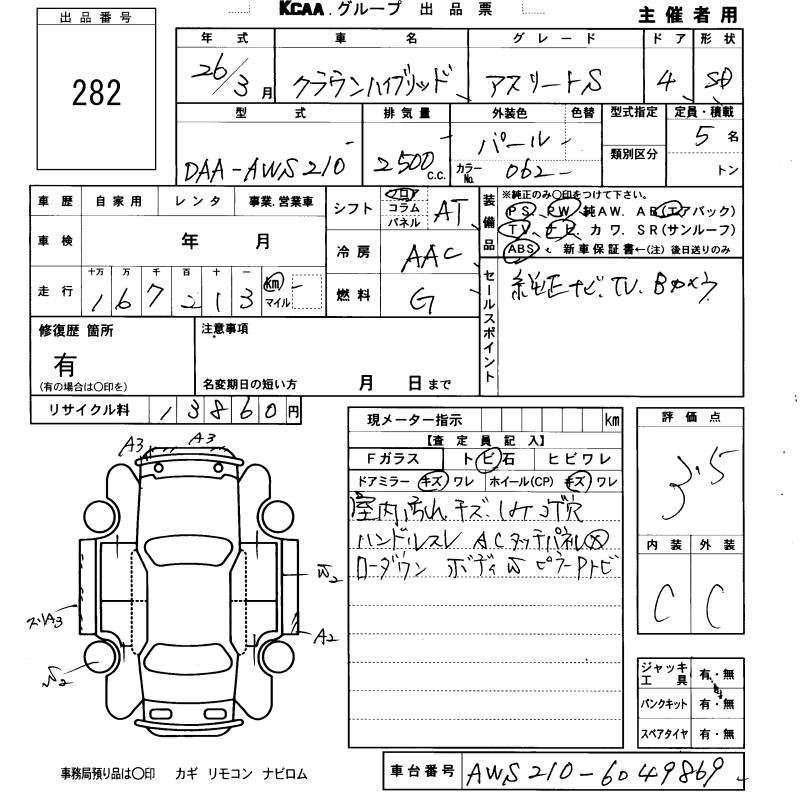 KCAA.グループ 出品票
主催者用
出品番号
282
年式 車名 グレード ドア 形状
26/3月 クラウンハイブリッド アスリートS 4 SD
型式 排気量 外装色 色替 型式指定 定員・積載
DAA-AWS210 2500c.c. パール 5名
カラーNo. 062 類別区分 トン
車歴 自家用 レンタ 事業.営業車
シフト フロア コラム パネル AT
装備品
※純正のみ○印をつけて下さい。
PS、PW、純AW、AB(エアバック)
TV、ナビ、カワ、SR(サンルーフ)
ABS、新車保証書←(注)後日送りのみ
車検 年 月
冷房 AAC
走行 十万 万 千 百 十 一
167213 km マイル
燃料 G
セールスポイント
純正ナビ.TV.Bカメラ
修復歴 箇所
有
(有の場合は○印を)
注意事項
名変期日の短い方 月 日まで
リサイクル料 13860円
現メーター指示 km
【査定員記入】
Fガラス トビ石 ヒビワレ
ドアミラー キズ ワレ ホイール(CP) キズ ワレ
室内汚れ キズ.コゲ 穴
ハンドルスレ ACタッチパネル
ローダウン ボディ ピラーPトビ
評価点
3.5
内装 外装
C C
A3 A3
W2
ズリA3
A2
W2
ジャッキ工具 有・無
パンクキット 有・無
スペアタイヤ 有・無
事務局預り品は○印 カギ リモコン ナビロム
車台番号 AWS210-6049869